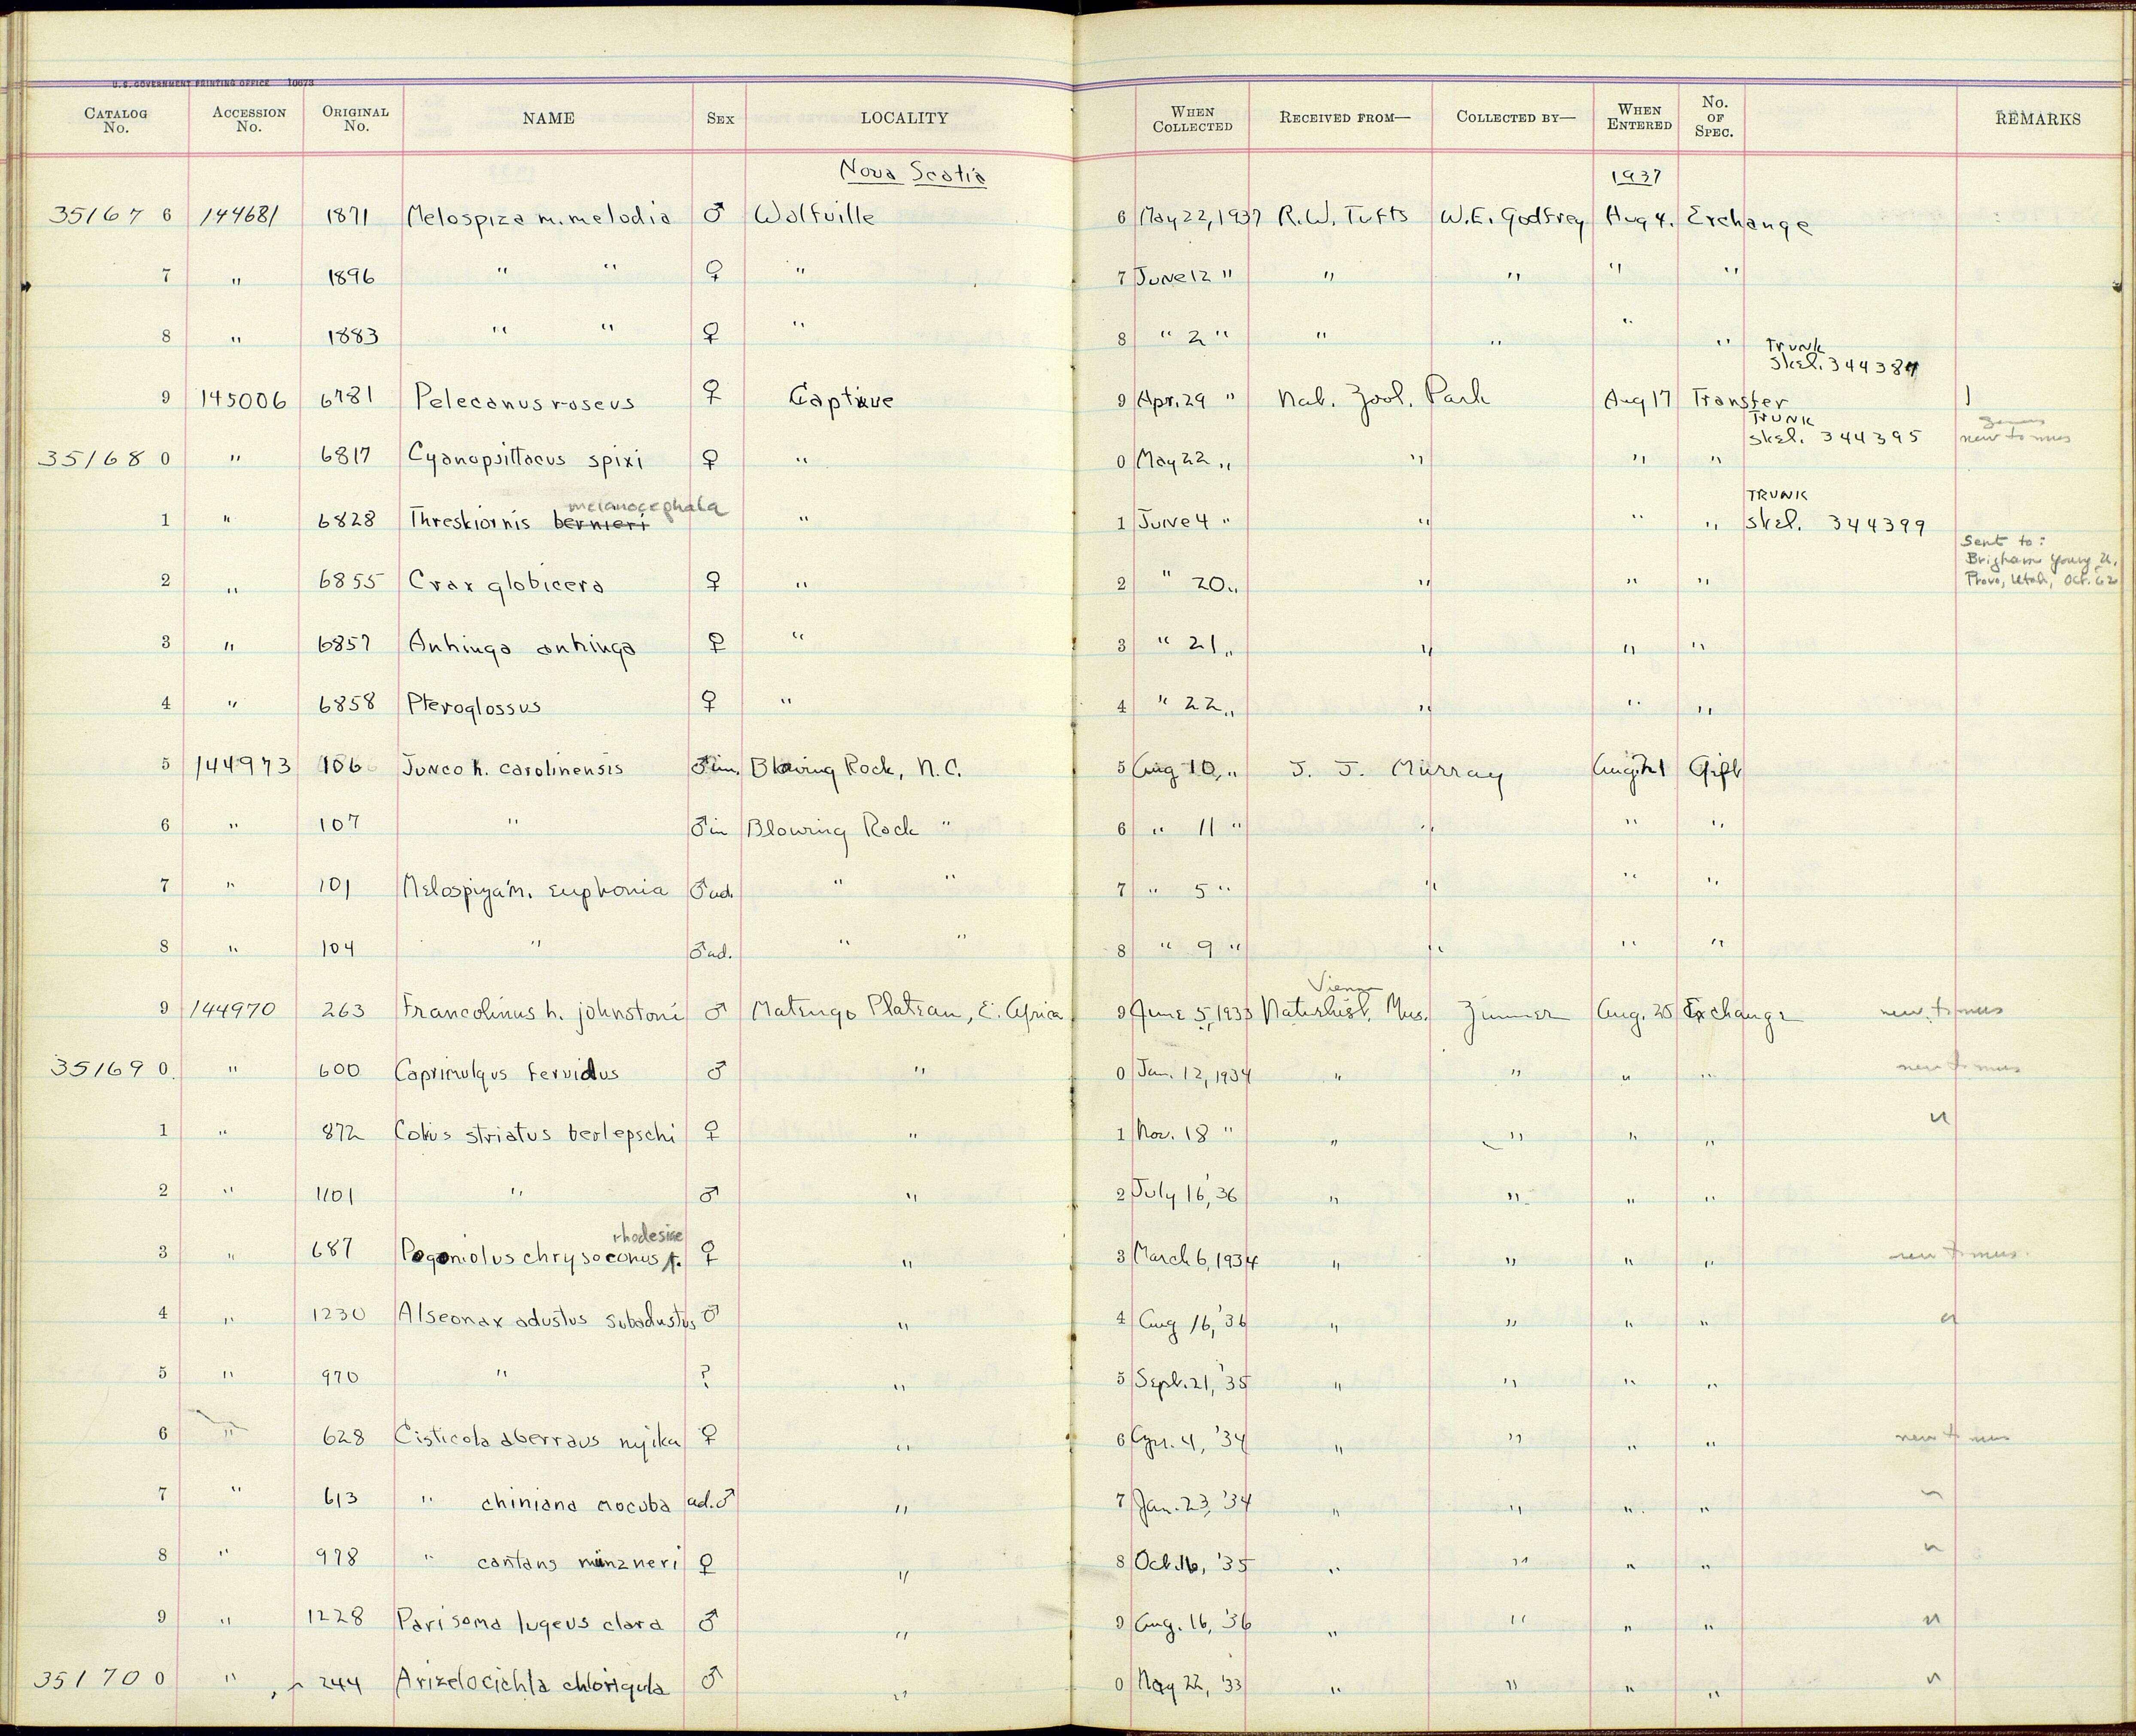 U.S. GOVERNMENT PRINTING OFFICE 10073
CATALOG No. ACCESSION No. ORIGINAL No. NAME SEX LOCALITY WHEN COLLECTED RECEIVED FROM— COLLECTED BY— WHEN ENTERED No. OF SPEC. REMARKS
Nova Scotia 1937
35167 6 144681 1871 Melospiza m. melodia ♂ Wolfville 6 May 22, 1937 R.W. Tufts W.E. Godfrey Aug 4. Exchange
7 " 1896 " " ♀ " 7 June 12 " " " " "
8 " 1883 " " ♀ " 8 " 2 " " " " "
Trunk
Skel. 344384
9 145006 6781 Pelecanus roseus ♀ Captive 9 Apr. 29 " Nat. Zool. Park Aug 17 Transfer 1
TRUNK
Skel. 344395 new to mus
35168 0 " 6817 Cyanopsittacus spixi ♀ " 0 May 22 " " " "
melanocephala TRUNK
1 " 6828 Threskiornis bernieri " 1 June 4 " " " " Skel. 344399
Sent to:
Brigham Young U.
Provo, Utah, Oct. 62
2 " 6855 Crax globicera ♀ " 2 " 20 " " " "
3 " 6857 Anhinga anhinga ♀ " 3 " 21 " " " "
4 " 6858 Pteroglossus ♀ " 4 " 22 " " " "
5 144973 106 Junco h. carolinensis ♂ im. Blowing Rock, N.C. 5 Aug 10, " J. J. Murray Aug 21 Gift
6 " 107 " ♂ im Blowing Rock " 6 " 11 " " " "
7 " 101 Melospiza m. euphonia ♂ ad. " " 7 " 5 " " " "
8 " 104 " ♂ ad. " " 8 " 9 " " " "
Vienna
9 144970 263 Francolinus h. johnstoni ♂ Matengo Plateau, E. Africa 9 June 5, 1933 Naturhist. Mus. Zimmer Aug. 25 Exchange new to mus
35169 0. " 600 Caprimulgus fervidus ♂ " 0 Jan. 12, 1934 " " " " new to mus
1 " 872 Colius striatus berlepschi ♀ " 1 Nov. 18 " " " " " "
2 " 1101 " ♂ " 2 July 16, '36 " " " "
rhodesiae
3 " 687 Pogoniolus chrysoconus ♀ " 3 March 6, 1934 " " " " new to mus.
4 " 1230 Alseonax adustus subadustus ♂ " 4 Aug 16, '36 " " " " "
5 " 970 " ? " 5 Sept. 21, '35 " " " "
6 " 628 Cisticola aberrans nyika ♀ " 6 Apr. 4, '34 " " " " new to mus
7 " 613 " chiniana mocuba ad. ♂ " 7 Jan. 23, '34 " " " " "
8 " 978 " cantans münzneri ♀ " 8 Oct. 16, '35 " " " " "
9 " 1228 Parisoma lugens clara ♂ " 9 Aug. 16, '36 " " " " "
35170 0 " 244 Arizelocichla chlorigula ♂ " 0 May 22, '33 " " " " "